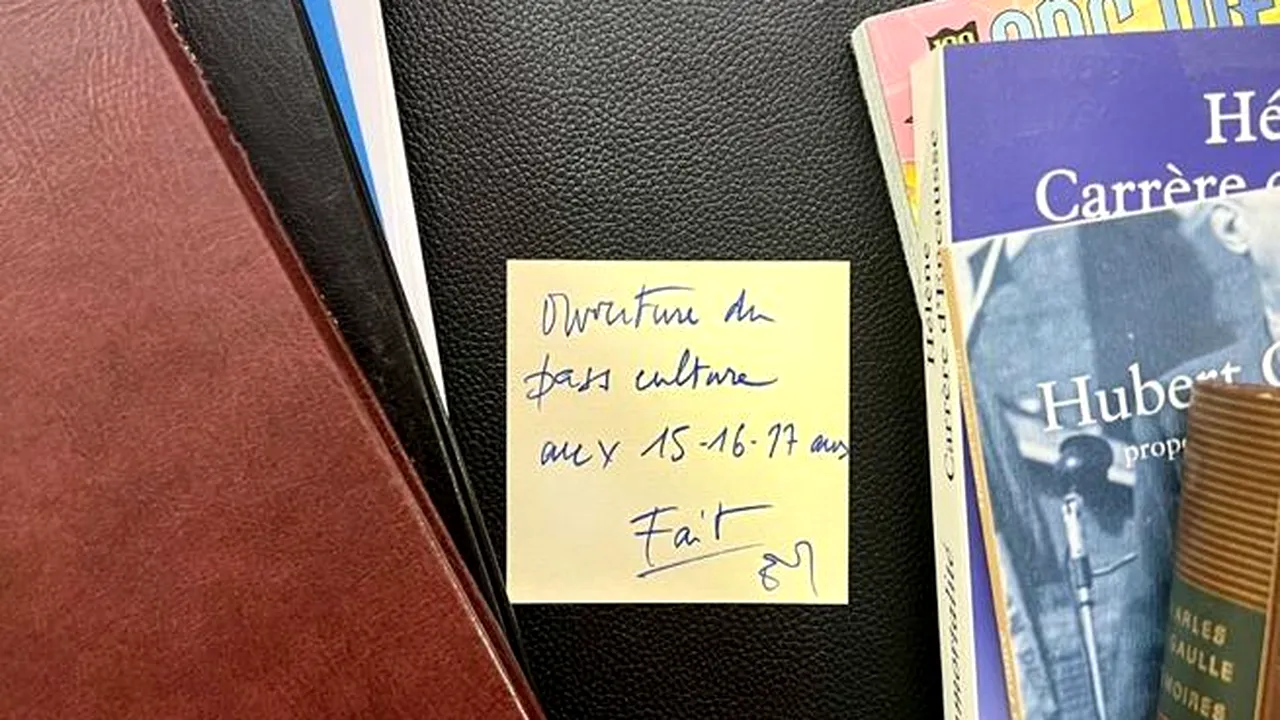 Ouverture du
pass culture
aux 15-16-17 ans
Fait
Hé
Carrère
Hubert
Hélène
Carrère d'Encausse
ARLES
GAULLE
MOIRES